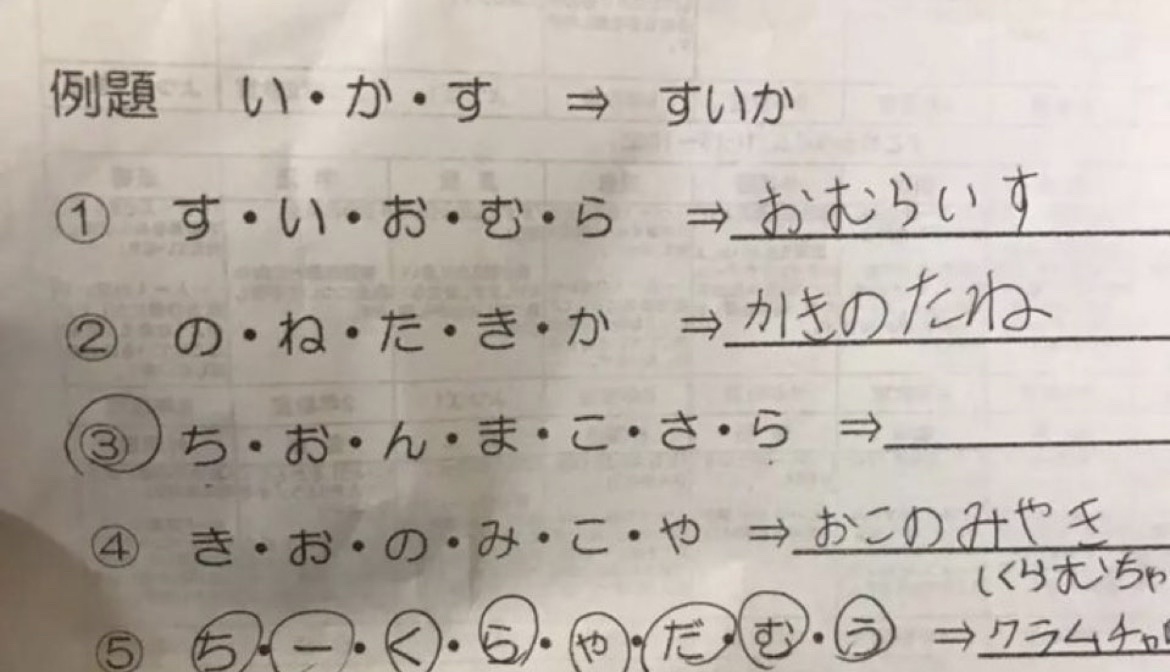 例題 い・か・す ⇒ すいか
① す・い・お・む・ら ⇒ おむらいす
② の・ね・た・き・か ⇒ かきのたね
③ ち・お・ん・ま・こ・さ・ら ⇒
④ き・お・の・み・こ・や ⇒ おこのみやき
(くらむちゃ
⑤ ち・ー・く・ら・や・だ・む・う ⇒ クラムチャ